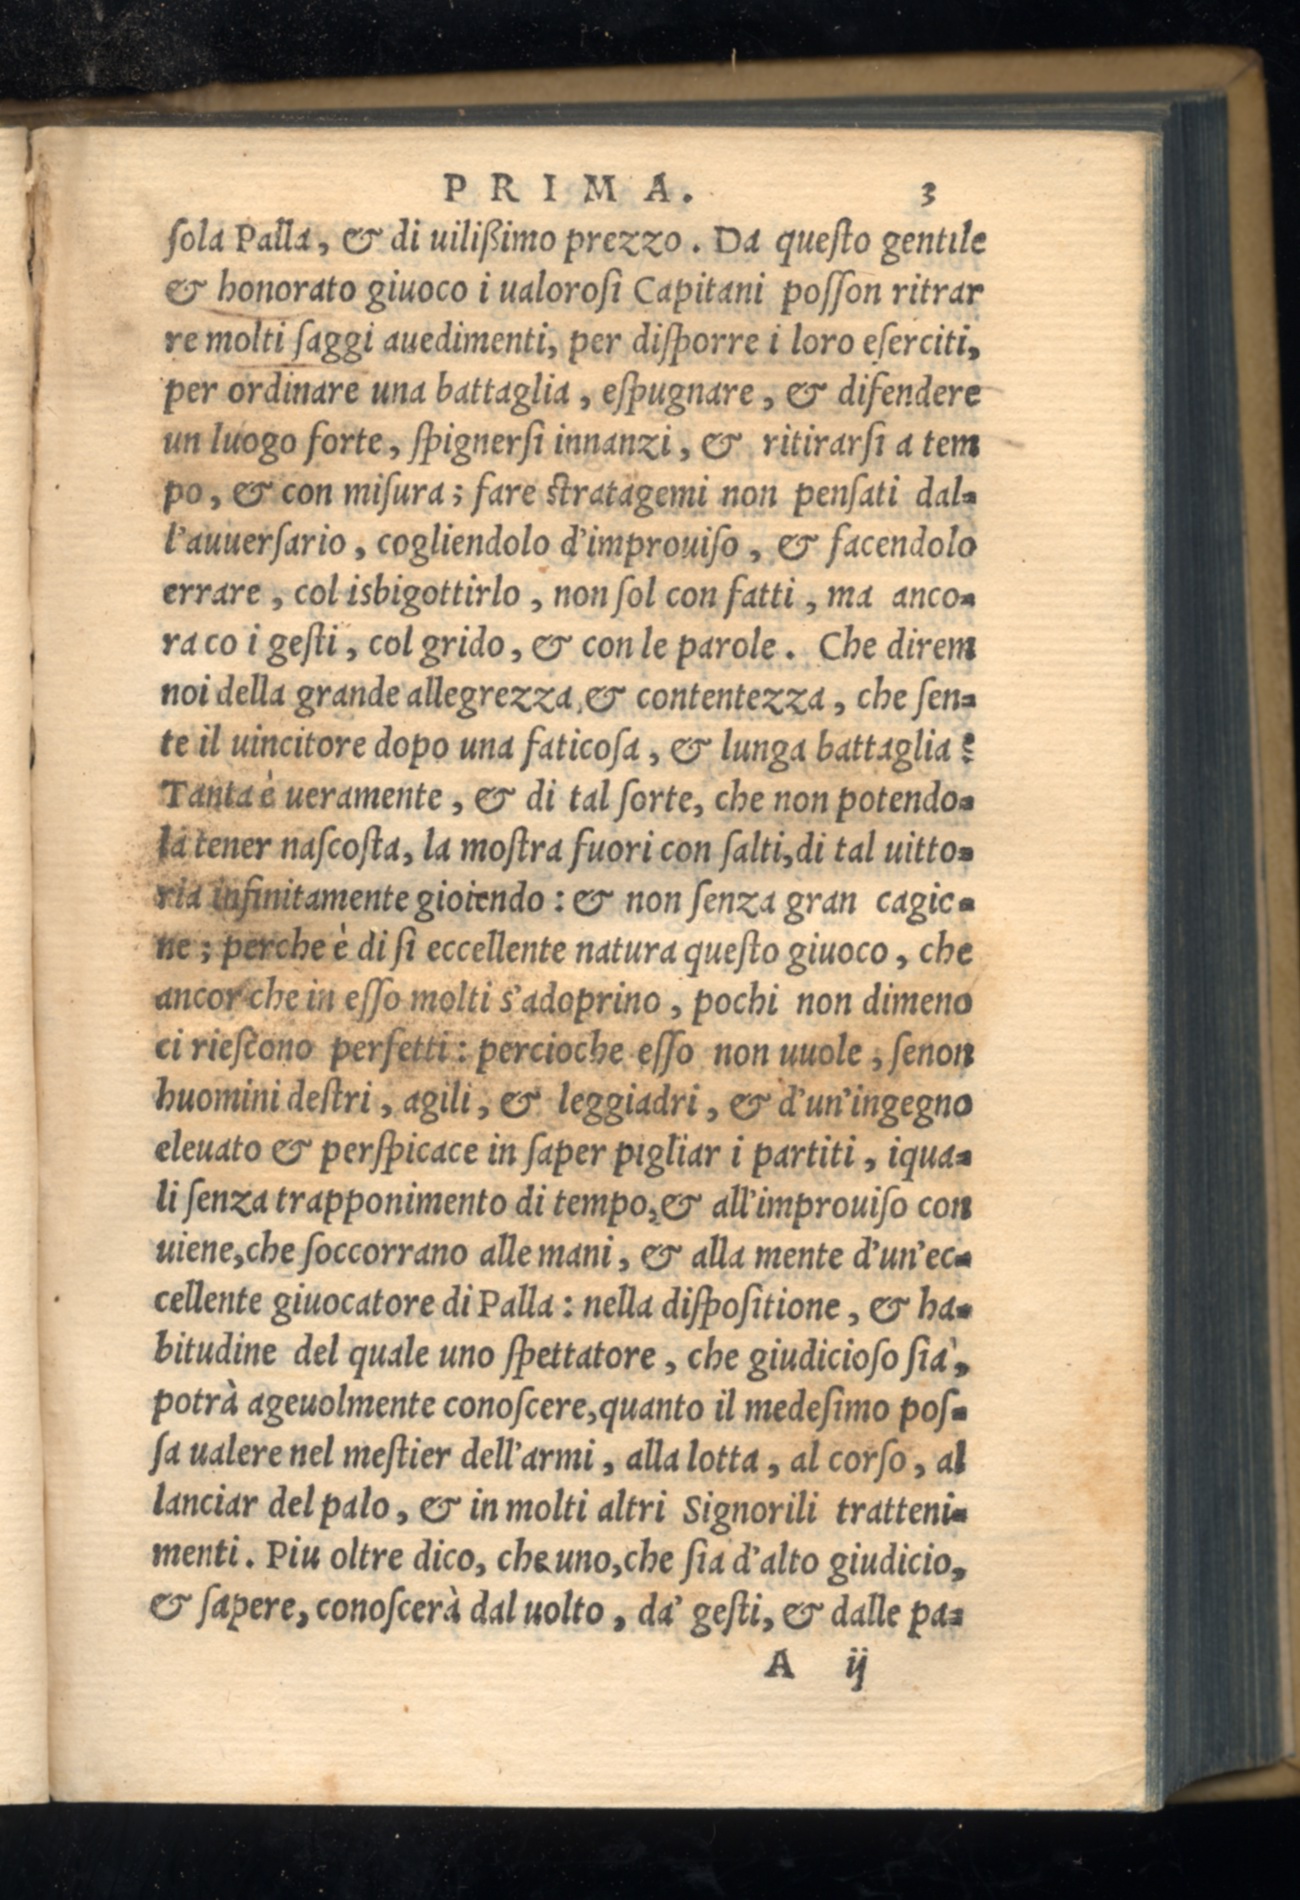 PRIMA. 3
ſola Palla, & di uilißimo prezzo. Da queſto gentile
& honorato giuoco i ualoroſi Capitani poſſon ritrar
re molti ſaggi auedimenti, per diſporre i loro eſerciti,
per ordinare una battaglia, eſpugnare, & difendere
un luogo forte, ſpignerſi innanzi, & ritirarſi a tem
po, & con miſura; fare stratagemi non penſati dal-
l'auuerſario, cogliendolo d'improuiſo, & facendolo
errare, col isbigottirlo, non ſol con fatti, ma anco-
ra co i geſti, col grido, & con le parole. Che direm
noi della grande allegrezza, & contentezza, che ſen-
te il uincitore dopo una faticoſa, & lunga battaglia?
Tanta è ueramente, & di tal ſorte, che non potendo-
la tener naſcoſta, la moſtra fuori con ſalti, di tal uitto-
ria infinitamente gioiendo: & non ſenza gran cagic-
ne; perche è di ſi eccellente natura queſto giuoco, che
ancor che in eſſo molti s'adoprino, pochi non dimeno
ci rieſcono perfetti: percioche eſſo non uuole, ſenon
huomini deſtri, agili, & leggiadri, & d'un'ingegno
eleuato & perſpicace in ſaper pigliar i partiti, iqua-
li ſenza trapponimento di tempo, & all'improuiſo con
uiene, che ſoccorrano alle mani, & alla mente d'un'ec-
cellente giuocatore di Palla: nella diſpoſitione, & ha-
bitudine del quale uno ſpettatore, che giudicioſo ſia,
potrà ageuolmente conoſcere, quanto il medeſimo poſ-
ſa ualere nel meſtier dell'armi, alla lotta, al corſo, al
lanciar del palo, & in molti altri Signorili tratteni-
menti. Piu oltre dico, che uno, che ſia d'alto giudicio,
& ſapere, conoſcerà dal uolto, da' geſti, & dalle pa-
A ij